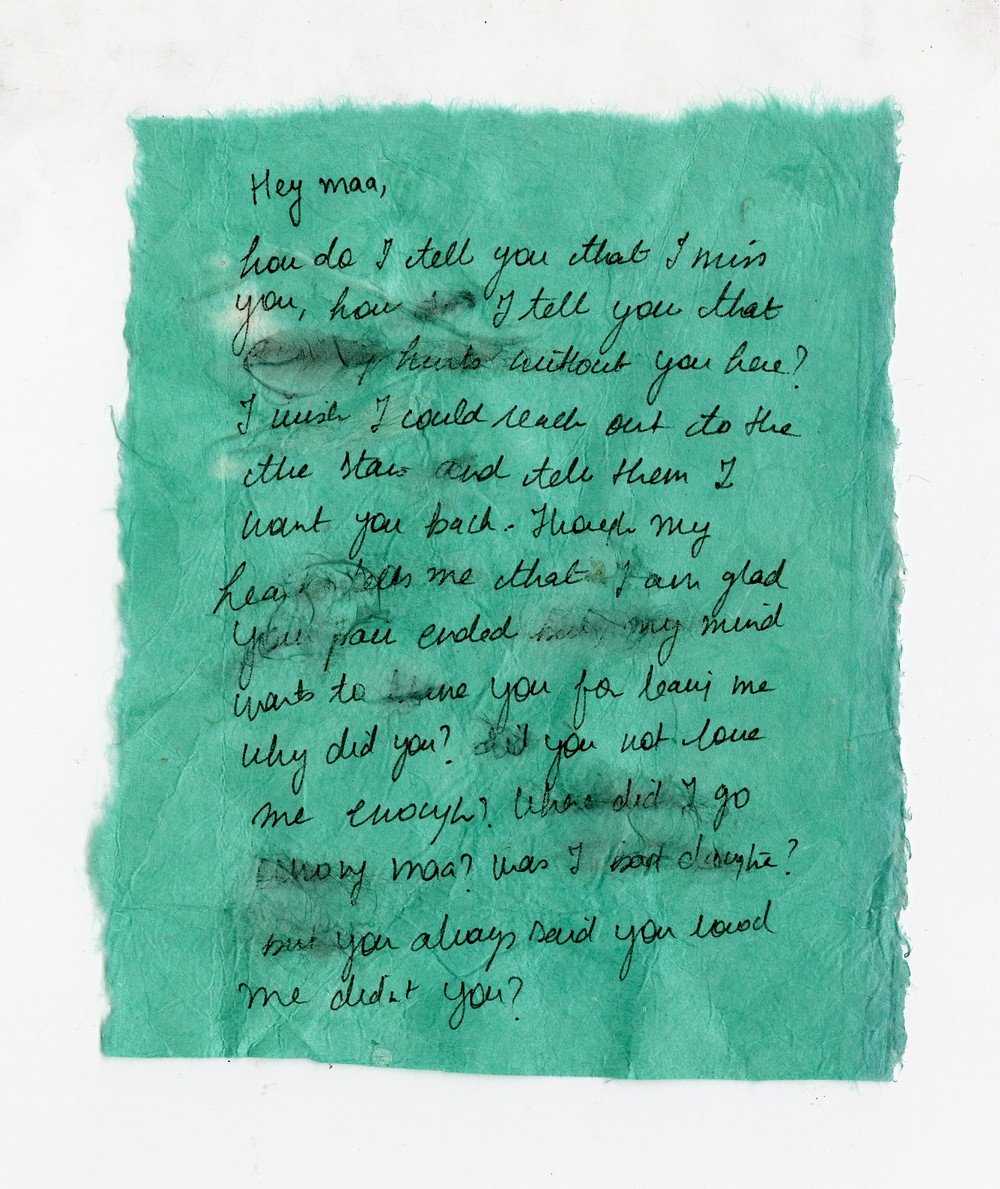 Hey maa,
how do I tell you that I miss
you, how I tell you that
hurts without you here?
I wish I could reach out to the
the stars and tell them I
want you back. Though my
heart tells me that I am glad
your pain ended but my mind
wants to you for leaving me
why did you? did you not love
me enough? Where did I go
wrong maa? was I bad daughter?
but you always said you loved
me didn't you?